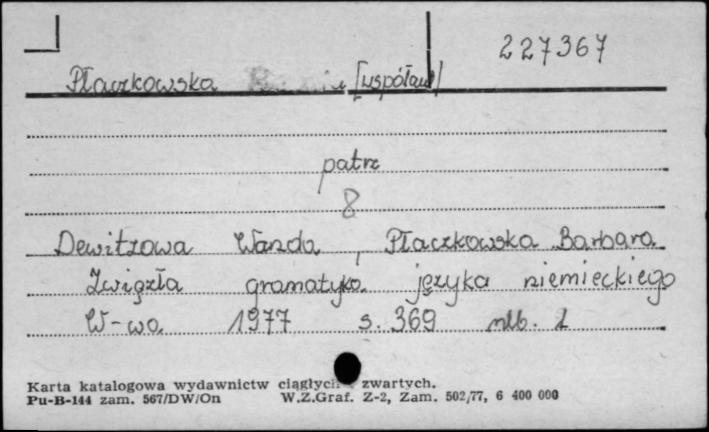 227367
Płaczkowska [współaut]
patrz
8
Dewitzowa Wanda, Płaczkowska Barbara
Zwięzła gramatyka języka niemieckiego
W-wa 1977 s. 369 nlb. 1
Karta katalogowa wydawnictw ciągłych zwartych.
Pu-B-144 zam. 567/DW/On W.Z.Graf. Z-2, Zam. 502/77, 6 400 000